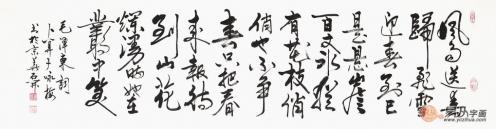 風雨送春
歸飛雪
迎春到已
是懸崖
百丈冰猶
有花枝俏
俏也不爭
春只把春
來報待
到山花
爛漫時她在
叢中笑
毛澤東詞
卜算子詠梅